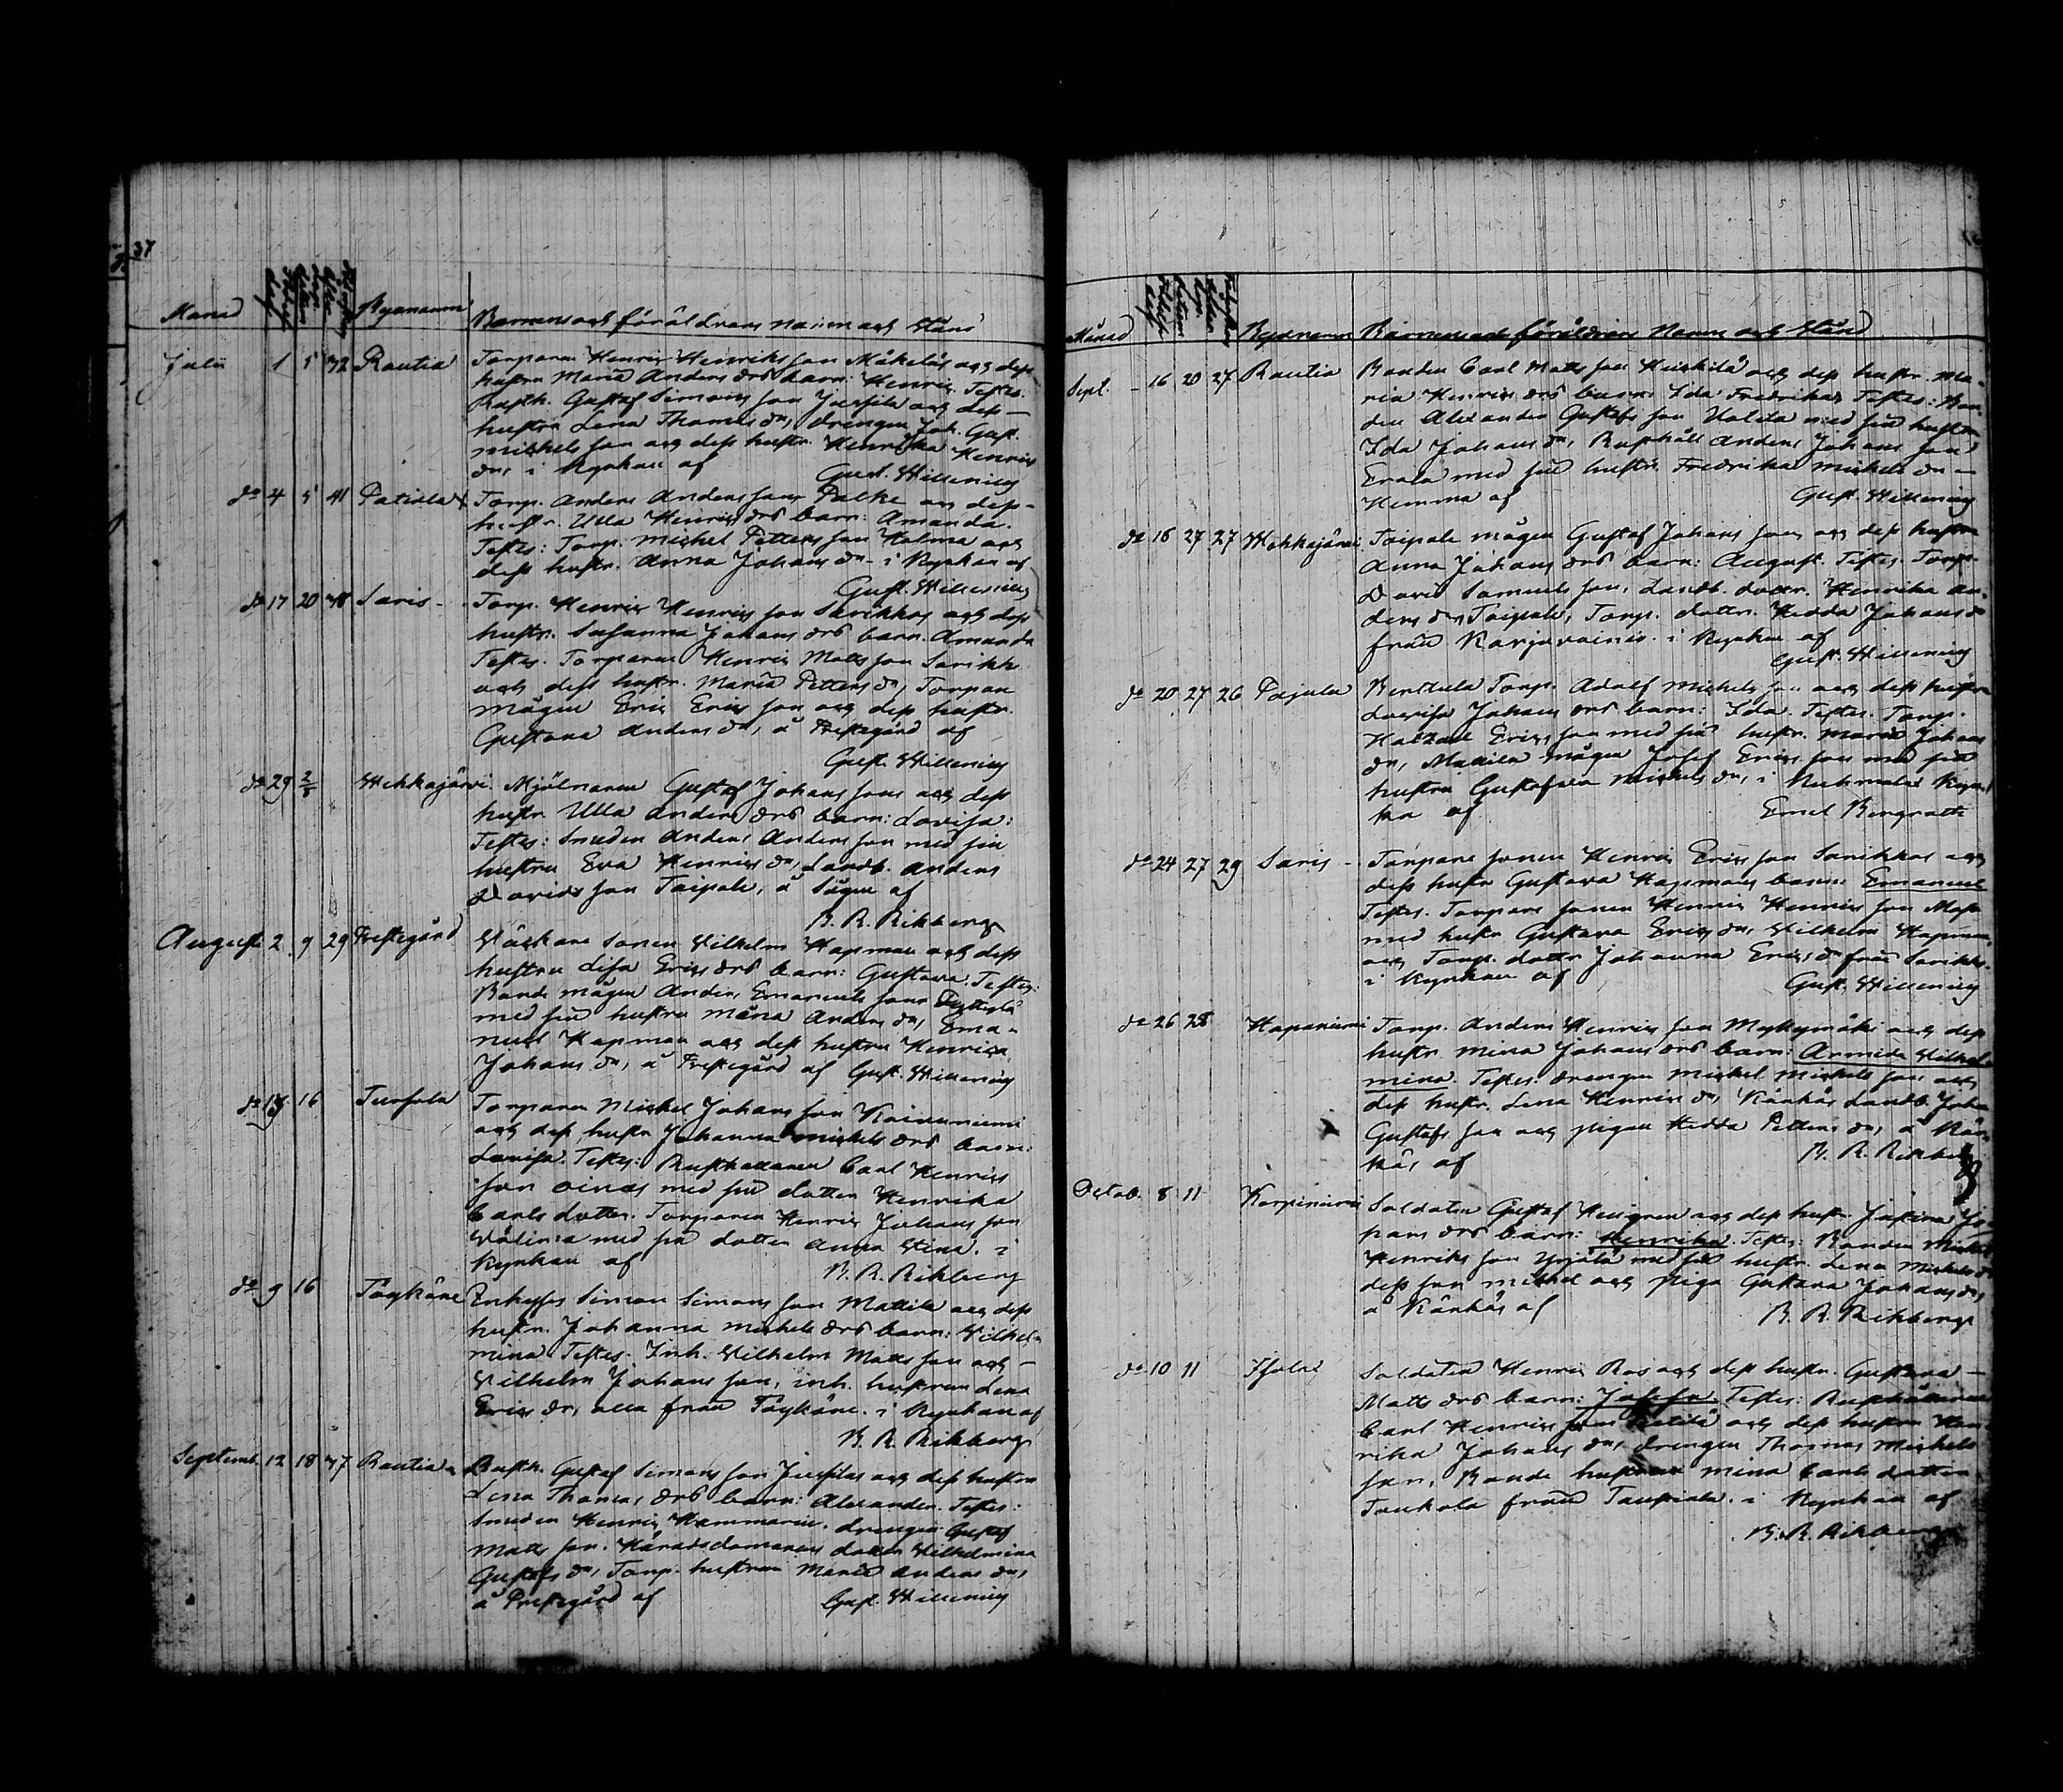 37
Månad Bynamn Barnens och föräldrars namn och stånd
Julii 1 5 32 Rautia Torparen Henric Henriks son Mäkeläs och dess
hustru Maria Anders drs barn: Henric. Testes.
Rusth. Gustaf Simons son och dess
hustru Lena Thomas dr, drengen Joh. Gust.
Michels son och dess hustr. Henrika Henrics
dr, i Kyrkan af Gust. Hillening
do 4 5 41 Torp. Anders Anders son Palke och dess
hustr. Ulla Henrics drs barn: Amanda.
Testes: Torp. Michel Petters son Kalma och
dess hustr. Anna Johans dr i Kyrkan af
Gust. Hillening
do 17 20 Saris Torp. Henric Henrics son Sarikkas och dess
hustr. Susanna Johans drs barn. Amanda
Testes. Torparen Henric Matts son Sarikk
och dess hustr. Maria Petters dr, Torpare
mågen Eric Erics son och dess hustr.
Gustava Anders dr, å Prestegård af
Gust. Hillening
do 29 2/8 Wehkajärvi Mjölnaren Gustaf Johans sons och dess
hustr. Ulla Anders drs barn: Lovisa:
Testes: Smeden Anders Anders son med sin
hustru Eva Henrics dr, Landb. Anders
Davids son Taipale, å Sågen af
B. R. Rikberg
August 2 9 29 Prestegård sonen Vilhelm Hapman och dess
hustru Lisa Erics drs barn: Gustava. Testes:
Bonde mågen Anders Emanuels son
med sin hustru Anders dr, Ema-
nuel Hapman och dess hustru Henrica
Johans dr, å Prestegård af Gust. Hillening
do 16 Torparen Michel Johans son
och dess hustr Johanna Michels drs barn:
Lovisa. Testes: Rusthållaren Carl Henrics
son med sin dotter Henrika
Carls dotter. Torparen Henric Johans son
med sin dotter Anna Stina. i
Kyrkan af B. R. Rikberg
do 9 16 Simon Simons son Mattila och dess
hustr. Johanna Michels drs barn: Vilhel-
mina. Testes. Inh. Vilhelm Matts son och
Vilhelm Johans son, inh. hustrun Lena
Erics dr, alla från i Kyrkan af
B. R. Rikberg
Septemb. 12 18 37 Rautia Rusth. Gustaf Simons son och dess hustru
Lena Thomas drs barn: Alexander. Testes:
Smeden Henric Hammarin, drengen Gustaf
Matts son. Häradsdomarens dotter Vilhelmina
Gustafs dr, Torp. hustrun Maria Anders dr,
å Prestegård af Gust. Hillening
Månad Bynamn Barnens och föräldrars namn och stånd
Sept. 16 20 27 Rautia Bonden Carl Matts son Heikkilä och dess hustr. Ma-
ria Henrics drs barn: Ida Fredrika. Testes: Bon-
den Alexander Gustafs son med sin hustru
Ida Johans dr, Rusthåll Anders Johans son
Erola med sin hustr. Fredrika Michels dr
Hemma af Gust. Hillening
do 16 27 27 Wehkajärvi Taipale mågen Gustaf Johans son och dess hustru
Anna Johans drs barn: August. Testes. Torp.
David Samuels son, Landb. dottr. Henrika An-
ders dr Taipale, Torp. dottr. Hedda Johans dr
från Karjavainio. i Kyrkan af
Gust. Hillening
do 20 27 26 Pajula Torp. Adolf Michels son och dess hustru
Lovisa Johans drs barn: Ida. Testes. Torp.
Erics son med sin hustr. Maria Johans
dr, Mattila mågen Josef Erics son med sin
hustru Gustafva Michels dr, i Kuhmalax Kyr-
ka af Emel Bergroth
do 24 27 29 Saris Torpare sonen Henric Erics son Sarikkas och
dess hustr Gustava Hapmans barn: Emanuel
Testes. Torpare sonen Henric Henrics son
med hustr Gustava Erics dr, Vilhelm Hapman,
och Torp. dottr Johanna Erics dr från Sarikkas
i Kyrkan af Gust. Hillening
do 26 28 Haponiemi Torp. Anders Henrics son Myllymäki och dess
hustr. Mina Johans drs barn: Armida Vilhel-
mina. Testes: drengen Michel Michels son och
dess hustr. Lena Henrics dr, Känkäs Landb. Johan
Gustafs son och pigan Hedda Petters dr, å Kän-
käs af B. R. Rikberg
Octob. 8 11 Korpiniemi Soldaten Gustaf och dess hustr. Justina Jo-
hans drs barn: Henrika. Testes: Bonden Michel
Henriks son Yrjälä med sin hustr. Lena Michels dr
dess son Michel och piga Gustava Johans dr,
å Känkäs af B. R. Rikberg
do 10 11 Soldaten Henric Ros och dess hustr. Gustava
Matts drs barn: Josefa. Testes: Rusthållaren
Carl Henrics son och dess hustru Hen-
rika Johans dr, drengen Thomas Michels
son, Bonde hustrun Mina Carls dotter
från i Kyrkan af
B. R. Rikberg